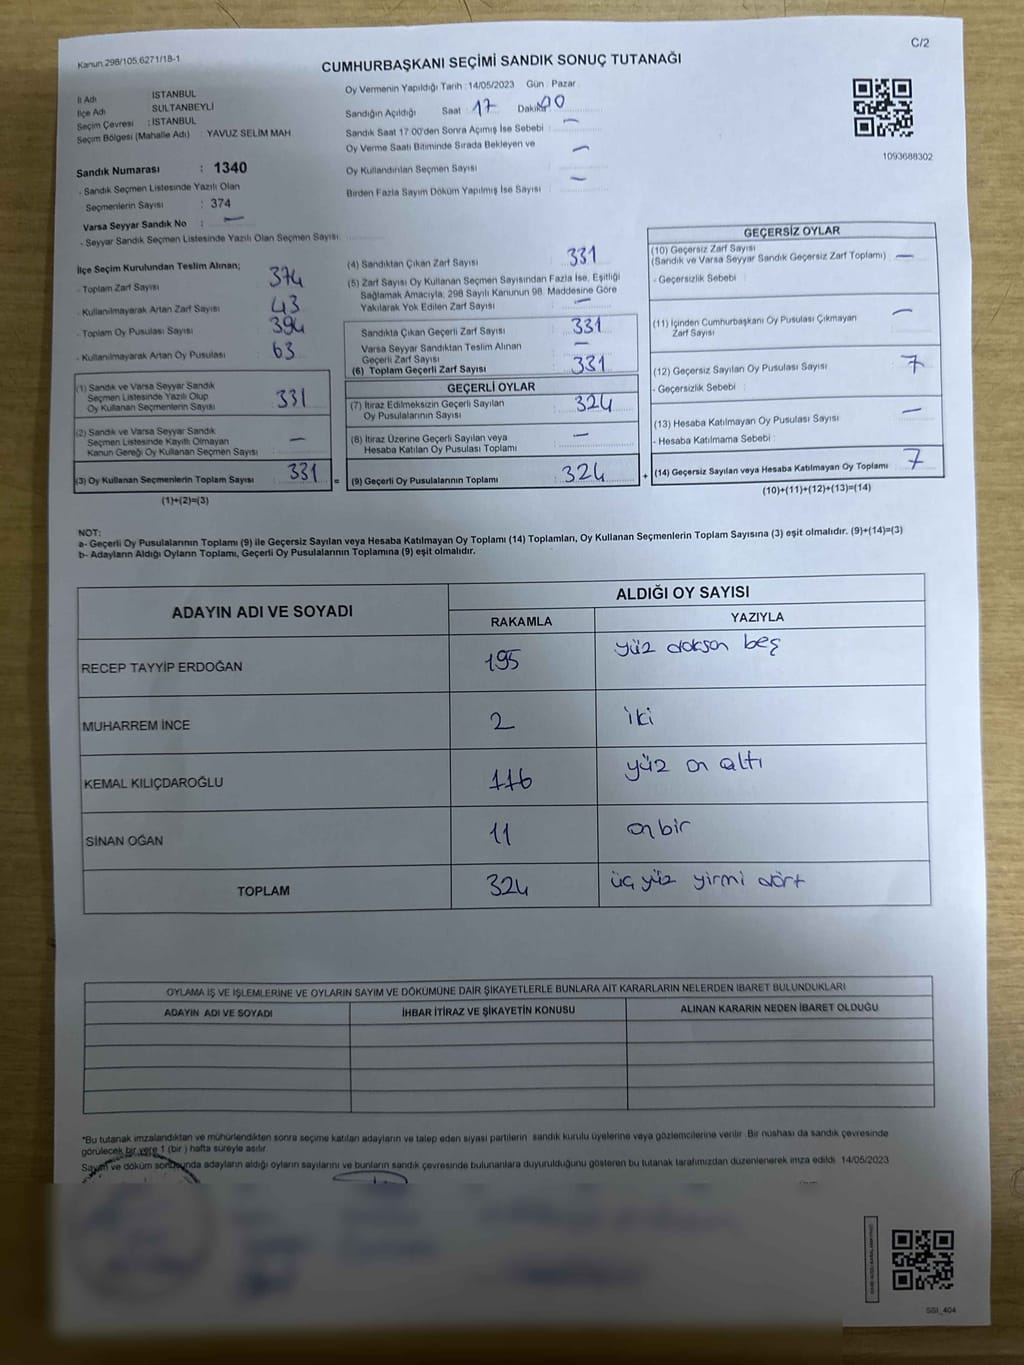 Kanun.298/105.6271/18-1
C/2
CUMHURBAŞKANI SEÇİMİ SANDIK SONUÇ TUTANAĞI
İl Adı : İSTANBUL
İlçe Adı : SULTANBEYLİ
Seçim Çevresi : İSTANBUL
Seçim Bölgesi (Mahalle Adı) : YAVUZ SELİM MAH.
Sandık Numarası : 1340
- Sandık Seçmen Listesinde Yazılı Olan
Seçmenlerin Sayısı : 374
Varsa Seyyar Sandık No : —
- Seyyar Sandık Seçmen Listesinde Yazılı Olan Seçmen Sayısı:
Oy Vermenin Yapıldığı Tarih : 14/05/2023 Gün : Pazar
Sandığın Açıldığı Saat : 17 Dakika: 00
Sandık Saat 17:00'den Sonra Açılmış İse Sebebi : —
Oy Verme Saati Bitiminde Sırada Bekleyen ve
Oy Kullandırılan Seçmen Sayısı : —
Birden Fazla Sayım Döküm Yapılmış İse Sayısı : —
1093688302
İlçe Seçim Kurulundan Teslim Alınan;
- Toplam Zarf Sayısı : 374
- Kullanılmayarak Artan Zarf Sayısı : 43
- Toplam Oy Pusulası Sayısı : 394
- Kullanılmayarak Artan Oy Pusulası : 63
(1) Sandık ve Varsa Seyyar Sandık
Seçmen Listesinde Yazılı Olup
Oy Kullanan Seçmenlerin Sayısı : 331
(2) Sandık ve Varsa Seyyar Sandık
Seçmen Listesinde Kayıtlı Olmayan
Kanun Gereği Oy Kullanan Seçmen Sayısı : —
(3) Oy Kullanan Seçmenlerin Toplam Sayısı : 331
(1)+(2)=(3)
(4) Sandıktan Çıkan Zarf Sayısı : 331
(5) Zarf Sayısı Oy Kullanan Seçmen Sayısından Fazla İse, Eşitliği
Sağlamak Amacıyla, 298 Sayılı Kanunun 98. Maddesine Göre
Yakılarak Yok Edilen Zarf Sayısı : —
Sandıkta Çıkan Geçerli Zarf Sayısı : 331
Varsa Seyyar Sandıktan Teslim Alınan
Geçerli Zarf Sayısı : —
(6) Toplam Geçerli Zarf Sayısı : 331
GEÇERLİ OYLAR
(7) İtiraz Edilmeksizin Geçerli Sayılan
Oy Pusulalarının Sayısı : 324
(8) İtiraz Üzerine Geçerli Sayılan veya
Hesaba Katılan Oy Pusulası Toplamı : —
= (9) Geçerli Oy Pusulalarının Toplamı : 324 +
GEÇERSİZ OYLAR
(10) Geçersiz Zarf Sayısı
(Sandık ve Varsa Seyyar Sandık Geçersiz Zarf Toplamı) : —
- Geçersizlik Sebebi :
(11) İçinden Cumhurbaşkanı Oy Pusulası Çıkmayan
Zarf Sayısı : —
(12) Geçersiz Sayılan Oy Pusulası Sayısı : 7
- Geçersizlik Sebebi :
(13) Hesaba Katılmayan Oy Pusulası Sayısı : —
- Hesaba Katılmama Sebebi :
(14) Geçersiz Sayılan veya Hesaba Katılmayan Oy Toplamı : 7
(10)+(11)+(12)+(13)=(14)
NOT:
a- Geçerli Oy Pusulalarının Toplamı (9) ile Geçersiz Sayılan veya Hesaba Katılmayan Oy Toplamı (14) Toplamları, Oy Kullanan Seçmenlerin Toplam Sayısına (3) eşit olmalıdır. (9)+(14)=(3)
b- Adayların Aldığı Oyların Toplamı, Geçerli Oy Pusulalarının Toplamına (9) eşit olmalıdır.
ADAYIN ADI VE SOYADI ALDIĞI OY SAYISI
RAKAMLA YAZIYLA
RECEP TAYYİP ERDOĞAN 195 yüz doksan beş
MUHARREM İNCE 2 iki
KEMAL KILIÇDAROĞLU 116 yüz on altı
SİNAN OĞAN 11 on bir
TOPLAM 324 üç yüz yirmi dört
OYLAMA İŞ VE İŞLEMLERİNE VE OYLARIN SAYIM VE DÖKÜMÜNE DAİR ŞİKAYETLERLE BUNLARA AİT KARARLARIN NELERDEN İBARET BULUNDUKLARI
ADAYIN ADI VE SOYADI İHBAR İTİRAZ VE ŞİKAYETİN KONUSU ALINAN KARARIN NEDEN İBARET OLDUĞU
*Bu tutanak imzalandıktan ve mühürlendikten sonra seçime katılan adayların ve talep eden siyasi partilerin sandık kurulu üyelerine veya gözlemcilerine verilir. Bir nüshası da sandık çevresinde
görülecek bir yere 1 (bir ) hafta süreyle asılır.
Sayım ve döküm sonucunda adayların aldığı oyların sayılarını ve bunların sandık çevresinde bulunanlara duyurulduğunu gösteren bu tutanak tarafımızdan düzenlenerek imza edildi. 14/05/2023
SSI_404